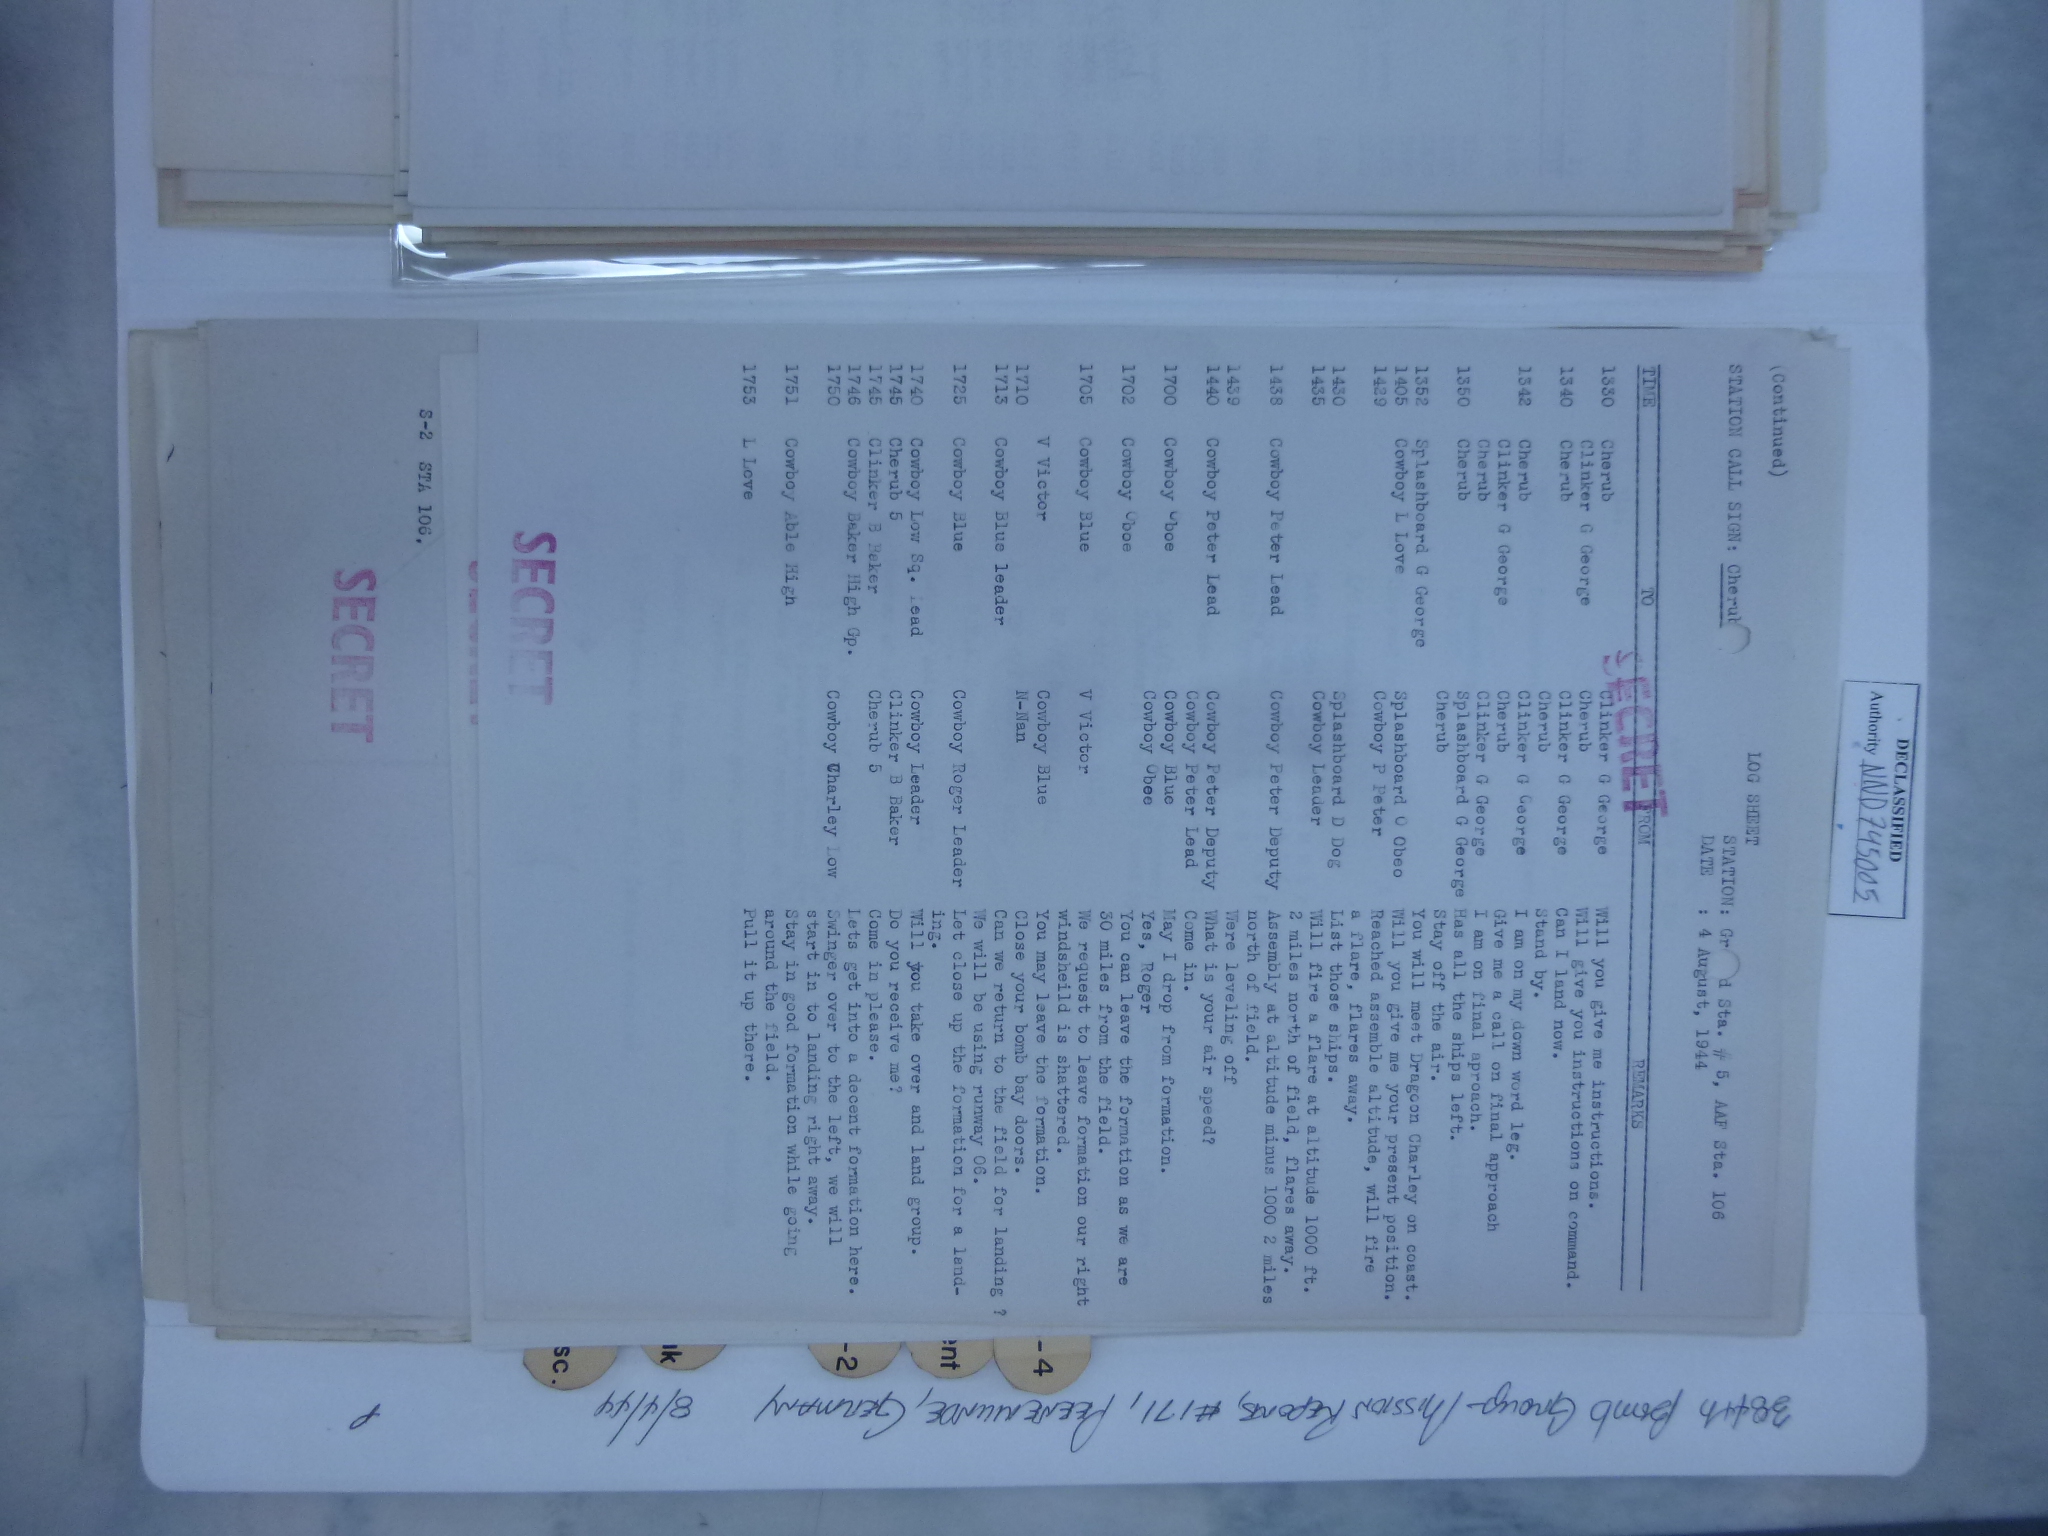 DECLASSIFIED
Authority NND 745005
(Continued)
LOG SHEET
STATION CALL SIGN: Cherub
STATION: Gr d Sta. # 5, AAF Sta. 106
DATE : 4 August, 1944
SECRET
TIME TO FROM REMARKS
1330 Cherub Clinker G George Will you give me instructions.
Clinker G George Cherub Will give you instructions on command.
1340 Cherub Clinker G George Can I land now.
Cherub Stand by.
1342 Cherub Clinker G George I am on my down word leg.
Clinker G George Cherub Give me a call on final approach
Cherub Clinker G George I am on final aproach.
1350 Cherub Splashboard G George Has all the ships left.
Cherub Stay off the air.
1352 Splashboard G George You will meet Dragoon Charley on coast.
1405 Cowboy L Love Splashboard O Oboo Will you give me your present position.
1429 Cowboy P Peter Reached assemble altitude, will fire
a flare, flares away.
1430 Splashboard D Dog List those ships.
1435 Cowboy Leader Will fire a flare at altitude 1000 ft.
2 miles north of field, flares away.
1438 Cowboy Peter Lead Cowboy Peter Deputy Assembly at altitude minus 1000 2 miles
north of field.
1439 Were leveling off
1440 Cowboy Peter Lead Cowboy Peter Deputy What is your air speed?
Cowboy Peter Lead Come in.
1700 Cowboy Oboe Cowboy Blue May I drop from formation.
Cowboy Oboe Yes, Roger
1702 Cowboy Oboe You can leave the formation as we are
30 miles from the field.
1705 Cowboy Blue V Victor We request to leave formation our right
windsheild is shattered.
V Victor Cowboy Blue You may leave the formation.
1710 N-Nan Close your bomb bay doors.
1713 Cowboy Blue leader Can we return to the field for landing ?
We will be using runway 06.
1725 Cowboy Blue Cowboy Roger Leader Let close up the formation for a land-
ing.
1740 Cowboy Low Sq. Lead Cowboy Leader Will you take over and land group.
1745 Cherub 5 Clinker B Baker Do you receive me?
1745 Clinker B Baker Cherub 5 Come in please.
1746 Cowboy Baker High Gp. Lets get into a decent formation here.
1750 Cowboy Charley Low Swinger over to the left, we will
start in to landing right away.
1751 Cowboy Able High Stay in good formation while going
around the field.
1753 L Love Pull it up there.
SECRET
S-2 STA 106.
SECRET
-4
ent
-2
nk
sc.
384th Bomb Group - Mission Reports, #171, PEENEMUNDE, GERMANY 8/4/44